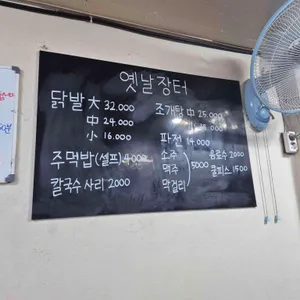 옛날장터
닭발 大 32.000
中 24.000
小 16.000
주먹밥(셀프) 4000
칼국수 사리 2000
조개탕 中 25,000
파전 14.000
소주
맥주 5000
막걸리
음료수 2000
쿨피스 1500